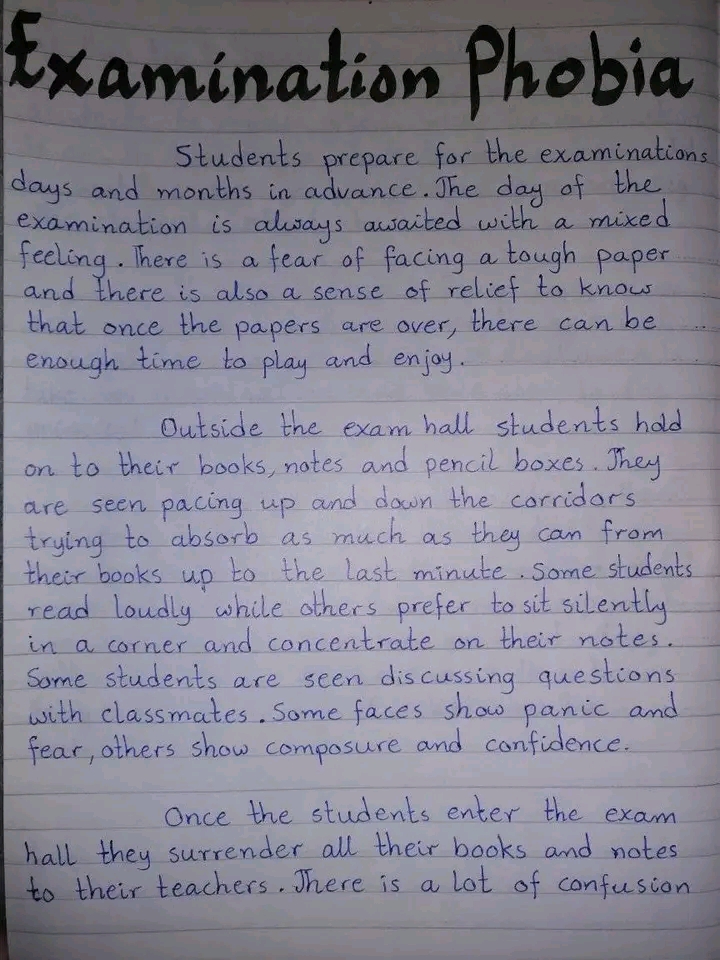 Examination Phobia
Students prepare for the examinations
days and months in advance. The day of the
examination is always awaited with a mixed
feeling. There is a fear of facing a tough paper
and there is also a sense of relief to know
that once the papers are over, there can be
enough time to play and enjoy.
Outside the exam hall students hold
on to their books, notes and pencil boxes. They
are seen pacing up and down the corridors
trying to absorb as much as they can from
their books up to the last minute. Some students
read loudly while others prefer to sit silently
in a corner and concentrate on their notes.
Some students are seen discussing questions
with classmates. Some faces show panic and
fear, others show composure and confidence.
Once the students enter the exam
hall they surrender all their books and notes
to their teachers. There is a lot of confusion